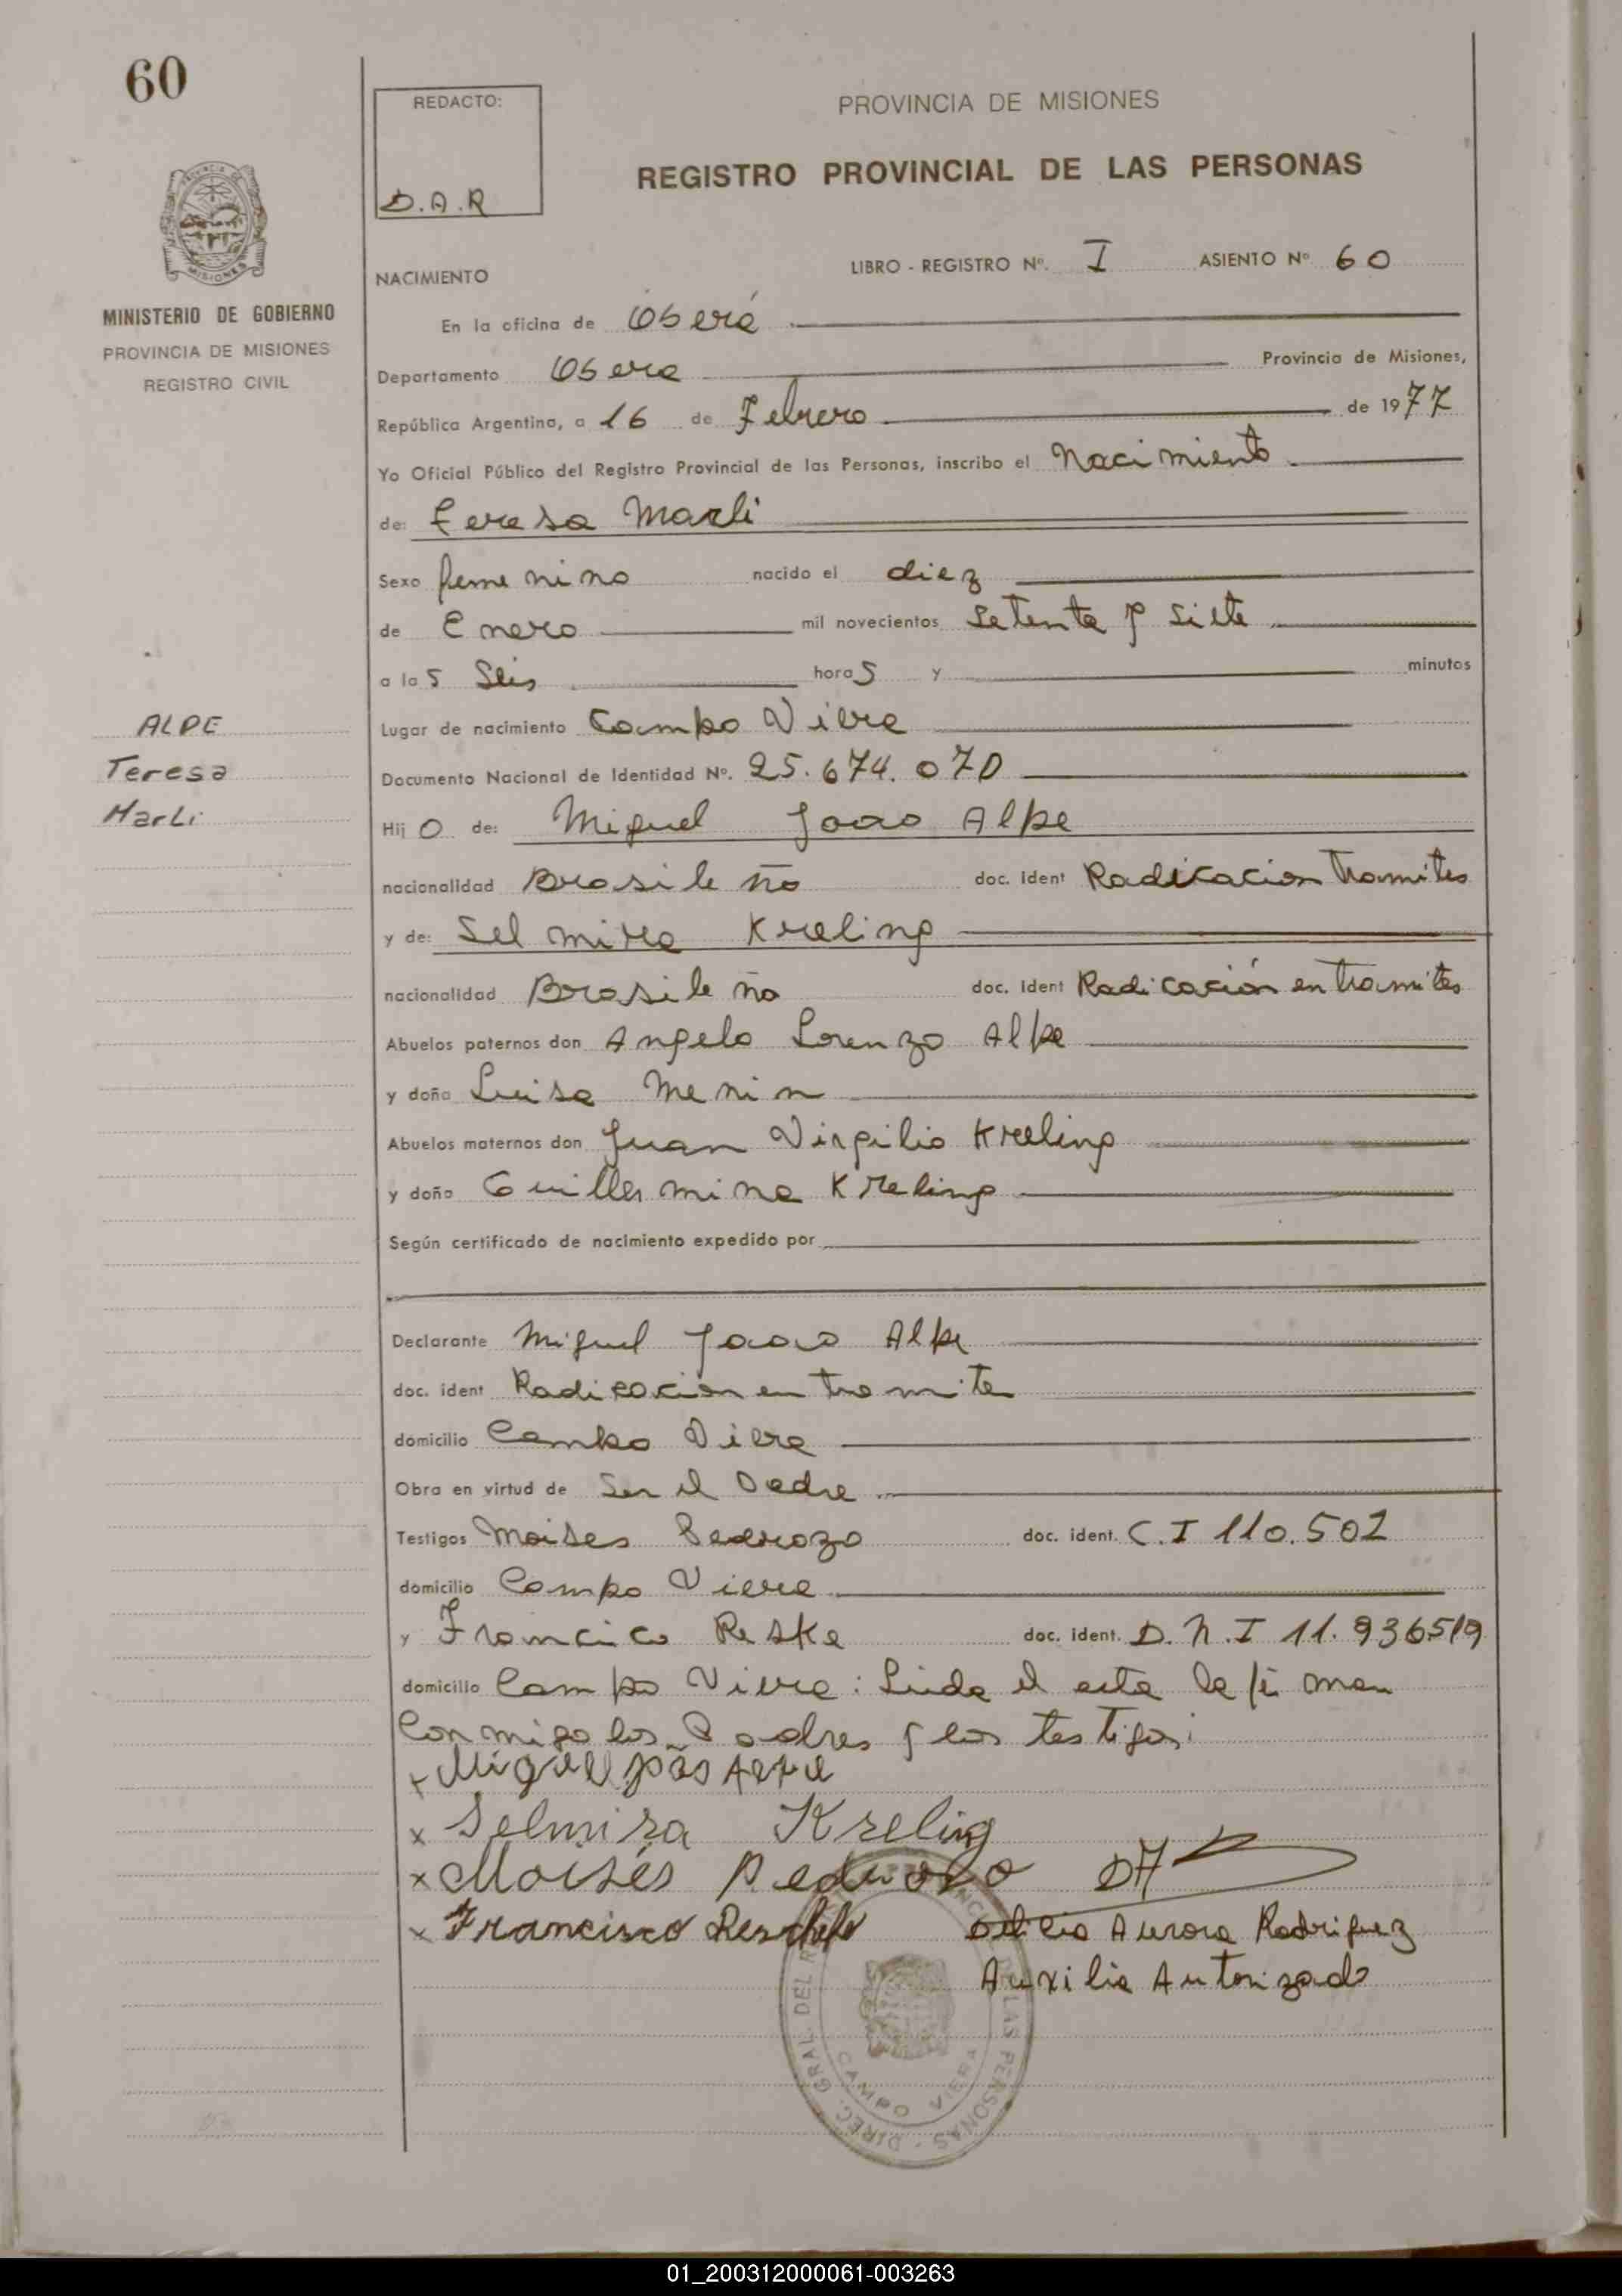 60
REDACTO:
D.A.R
PROVINCIA DE MISIONES
REGISTRO PROVINCIAL DE LAS PERSONAS
MISIONES
MINISTERIO DE GOBIERNO
PROVINCIA DE MISIONES
REGISTRO CIVIL
LIBRO - REGISTRO Nº. I ASIENTO Nº 60
NACIMIENTO
En la oficina de Oberá
Departamento Obera Provincia de Misiones,
República Argentina, a 16 de Febrero de 1977
Yo Oficial Público del Registro Provincial de las Personas, inscribo el Nacimiento
de: Teresa Marli
Sexo femenino nacido el diez
de Enero mil novecientos Setenta y Siete
a las Seis horas y minutos
ALPE
Teresa
Marli
Lugar de nacimiento Campo Viera
Documento Nacional de Identidad Nº. 25.674.070
Hijo de: Miguel Joao Alpe
nacionalidad Brasileño doc. ident Radicacion tramites
y de: Selmira Kreling
nacionalidad Brasileña doc. ident Radicación en tramites
Abuelos paternos don Angelo Lorenzo Alpe
y doña Luisa Menin
Abuelos maternos don Juan Virgilio Kreling
y doña Guillermina Kreling
Según certificado de nacimiento expedido por
Declarante Miguel Joao Alpe
doc. ident Radicacion en tramites
domicilio Campo Viera
Obra en virtud de Ser el Padre
Testigos Moises Pedrozo doc. ident. C.I 110.502
domicilio Campo Viera
y Francico Reske doc. ident. D.N.I 11.936519
domicilio Campo Viera: Leida el acta la firman
Conmigo los Padres y los testigos:
x Miguel João Alpe
x Selmira Kreling
x Moisés Pedrozo
x Francisco
Aurora Rodriguez
Auxilia Autorizado
DIREC. GRAL. DEL LAS PERSONAS
CAMPO VIERA
01_200312000061-003263